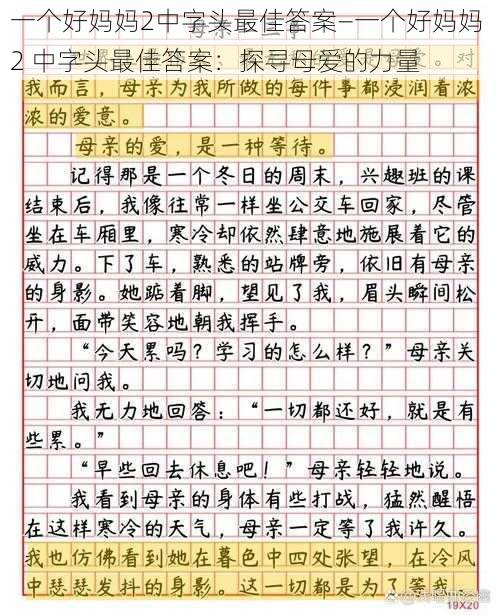 一个好妈妈2中字头最佳答案—一个好妈妈
2 中字头最佳答案：探寻母爱的力量
对
我而言，母亲为我所做的每件事都浸润着浓
浓的爱意。
母亲的爱，是一种等待。
记得那是一个冬日的周末，兴趣班的课
结束后，我像往常一样坐公交车回家，尽管
坐在车厢里，寒冷却依然肆意地施展着它的
威力。下了车，熟悉的站牌旁，依旧有母亲
的身影。她踮着脚，望见了我，眉头瞬间松
开，面带笑容地朝我挥手。
“今天累吗？学习的怎么样？”母亲关
切地问我。
我无力地回答：“一切都还好，就是有
些累。”
“早些回去休息吧！”母亲轻轻地说。
我看到母亲的身体有些打战，猛然醒悟
在这样寒冷的天气，母亲一定等了我许久。
我也仿佛看到她在暮色中四处张望，在冷风
中瑟瑟发抖的身影。这一切都是为了等我，
19X20